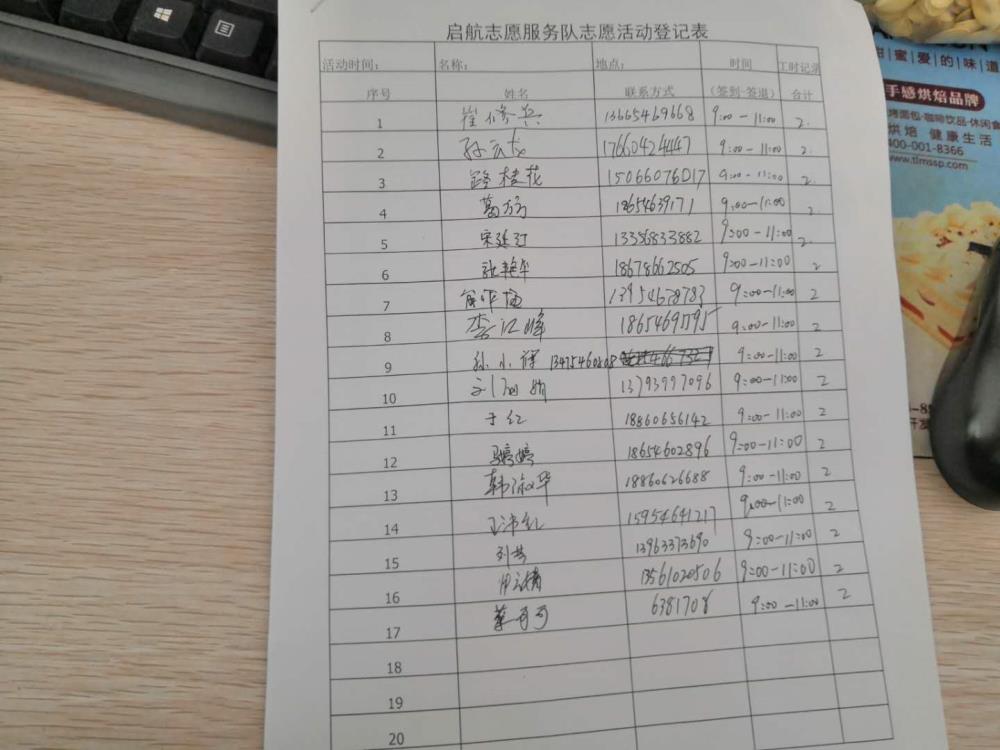 启航志愿服务队志愿活动登记表
活动时间： 名称： 地点： 时间 工时记录
序号 姓名 联系方式 （签到-签退） 合计
1 崔修兵 13665469668 9:00-11:00 2.
2 孙云龙 17660424447 9:00-11:00 2.
3 路桂花 15066076017 9:00-11:00 2.
4 葛方方 18654639171 9:00-11:00 2.
5 宋延江 13356833882 9:00-11:00 2.
6 张艳华 18678662505 9:00-11:00 2
7 13954678783 9:00-11:00 2
8 李江峰 9:00-11:00 2
9 孙小 13475460208 9:00-11:00 2
10 刘 13793997096 9:00-11:00 2
11 于红 18860656142 9:00-11:00 2
12 马婷婷 18654602896 9:00-11:00 2
13 韩淑华 18860626688 9:00-11:00 2
14 王沛红 15954641217 9:00-11:00 2
15 刘 13963373690 9:00-11:00 2
16 13561020506 9:00-11:00 2
17 蔡哥哥 6381708 9:00-11:00 2
18
19
20
蜜爱的味道
手感烘焙品牌
烤面包·咖啡饮品·休闲食
烘焙 健康生活
400-001-8366
www.tlmssp.com